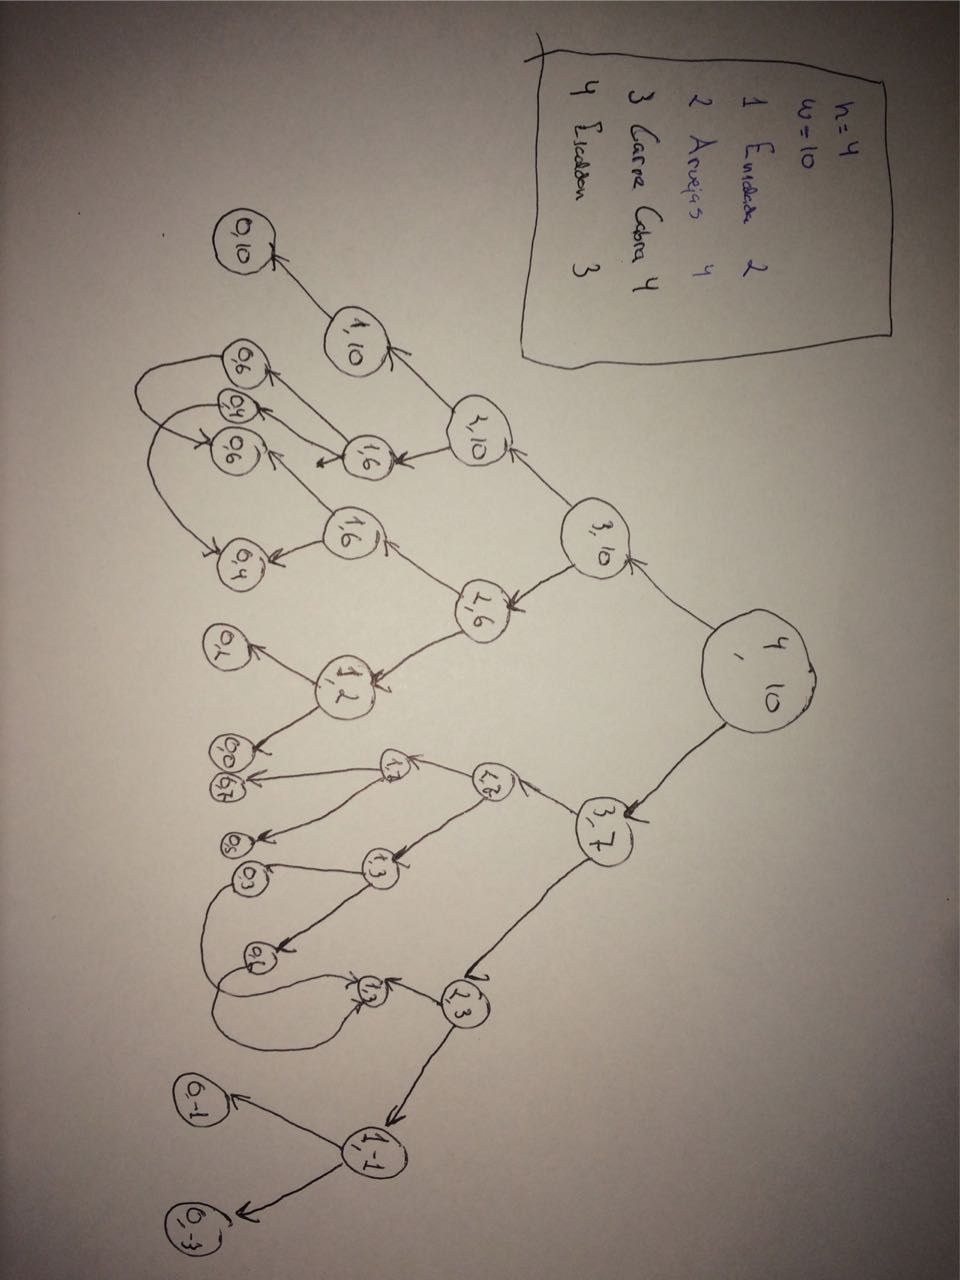 n=4
w=10
1 Ensalada 2
2 Arvejas 4
3 Carne Cabra 4
4 Escaldon 3
4,10
3,10 3,7
2,10 2,6 2,7 2,3
1,10 1,6 1,6 1,2 1,7 1,3 1,3 1,-1
0,10 0,6 0,4 0,6 0,4 0,2 0,0 0,7 0,5 0,3 0,1 0,-1 0,-3